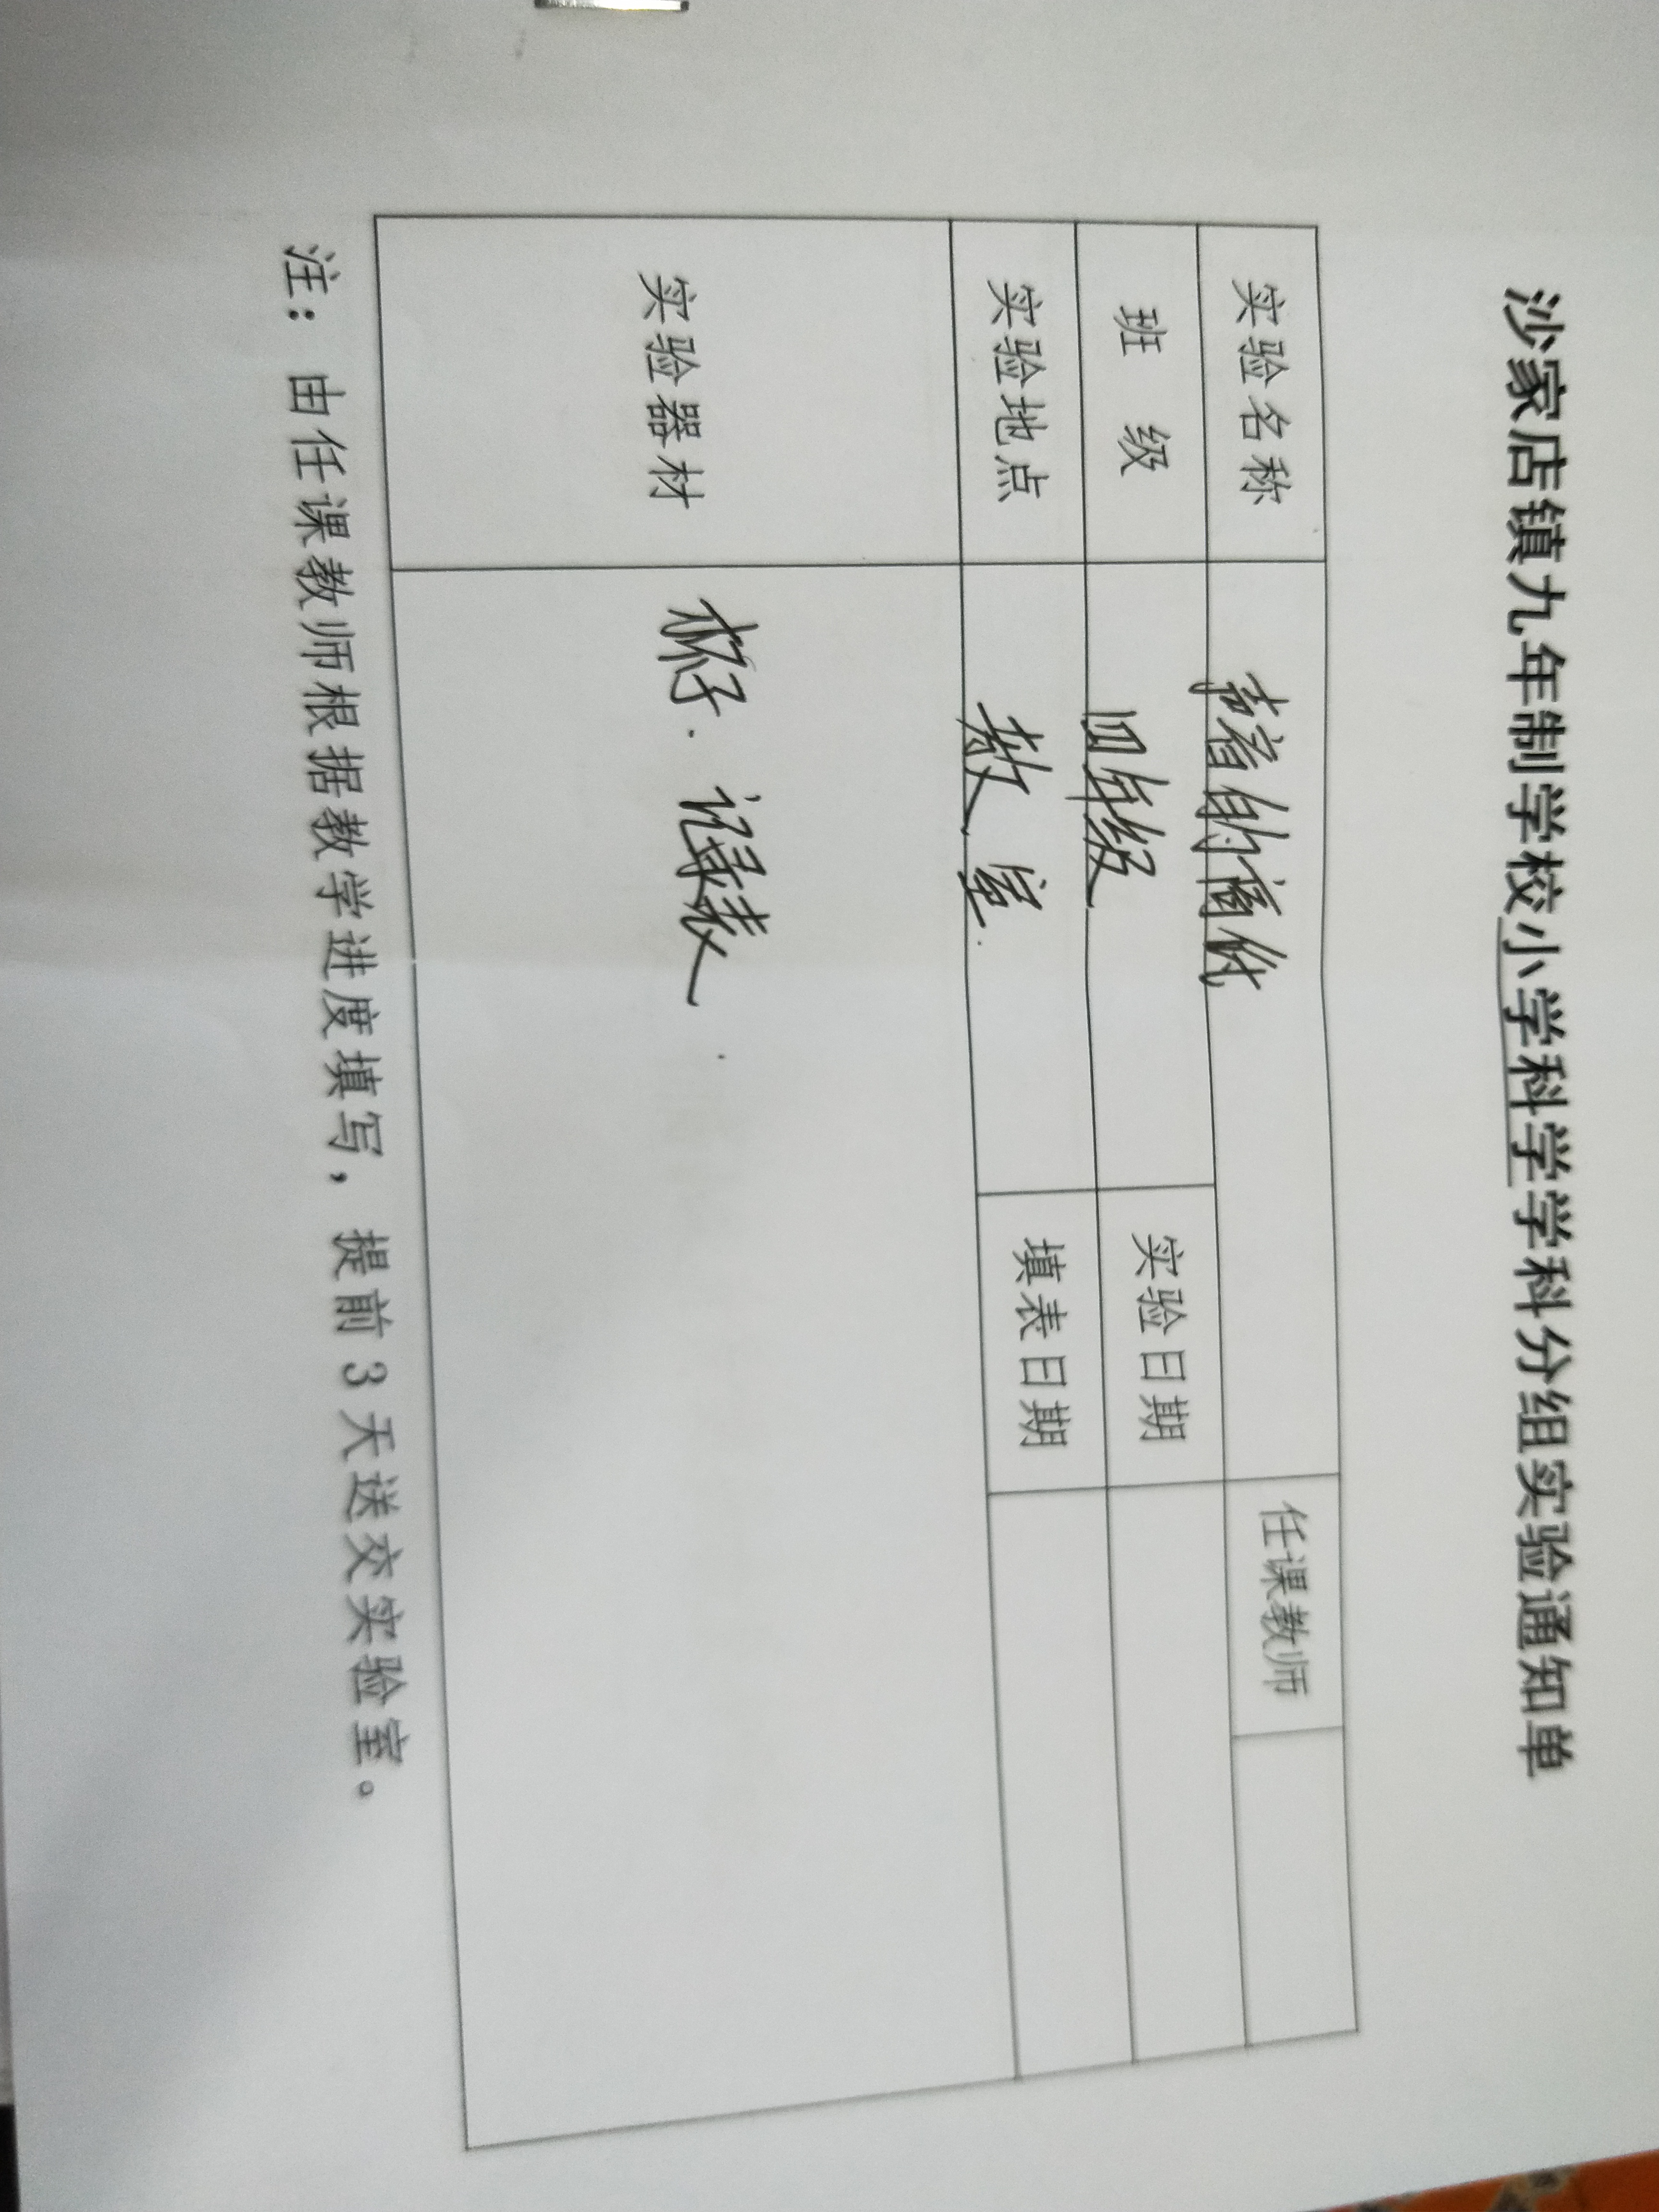 沙家店镇九年制学校小学科学学科分组实验通知单
实验名称 声音的高低 任课教师
班 级 四年级 实验日期
实验地点 教室. 填表日期
实验器材 杯子. 记录表
注：由任课教师根据教学进度填写，提前3天送交实验室。